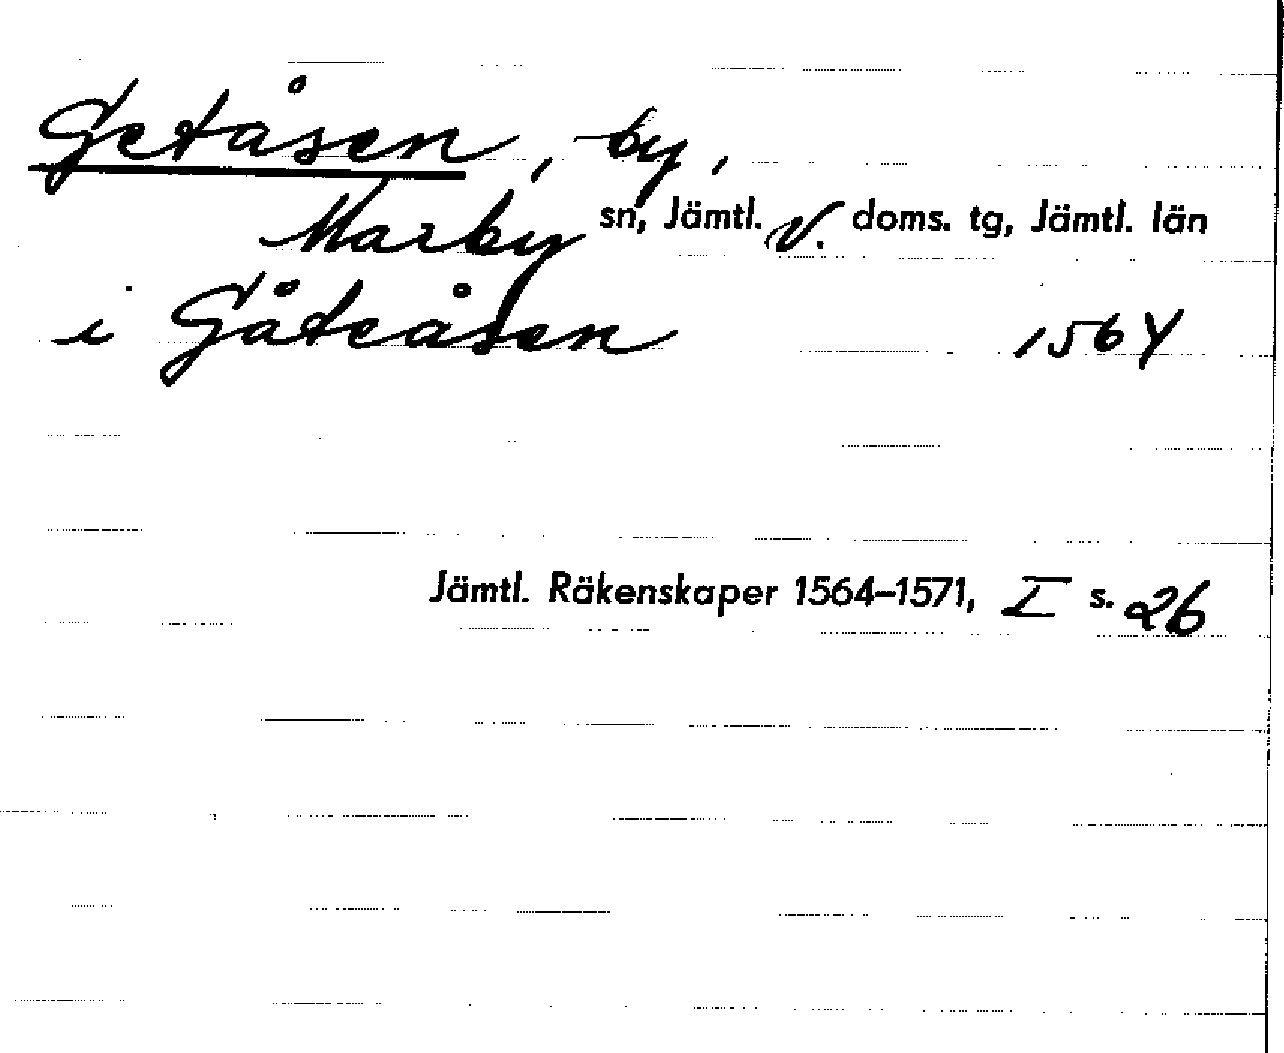 Getåsen, by,
Marby sn, Jämtl. v. doms. tg, Jämtl. län
i Gåteåsen 1564
Jämtl. Räkenskaper 1564–1571, I s. 26